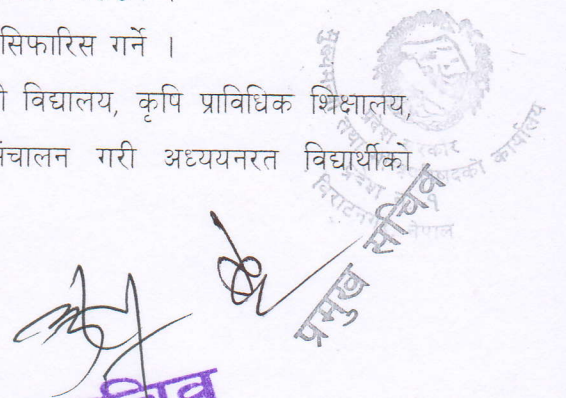 सिफारिस गर्ने ।
ी विद्यालय, कृषि प्राविधिक शिक्षालय,
संचालन गरी अध्ययनरत विद्यार्थीको
प्रदेश सरकार
कार्यालय
विराटनगर, नेपाल
प्रमुख सचिव
सचिव